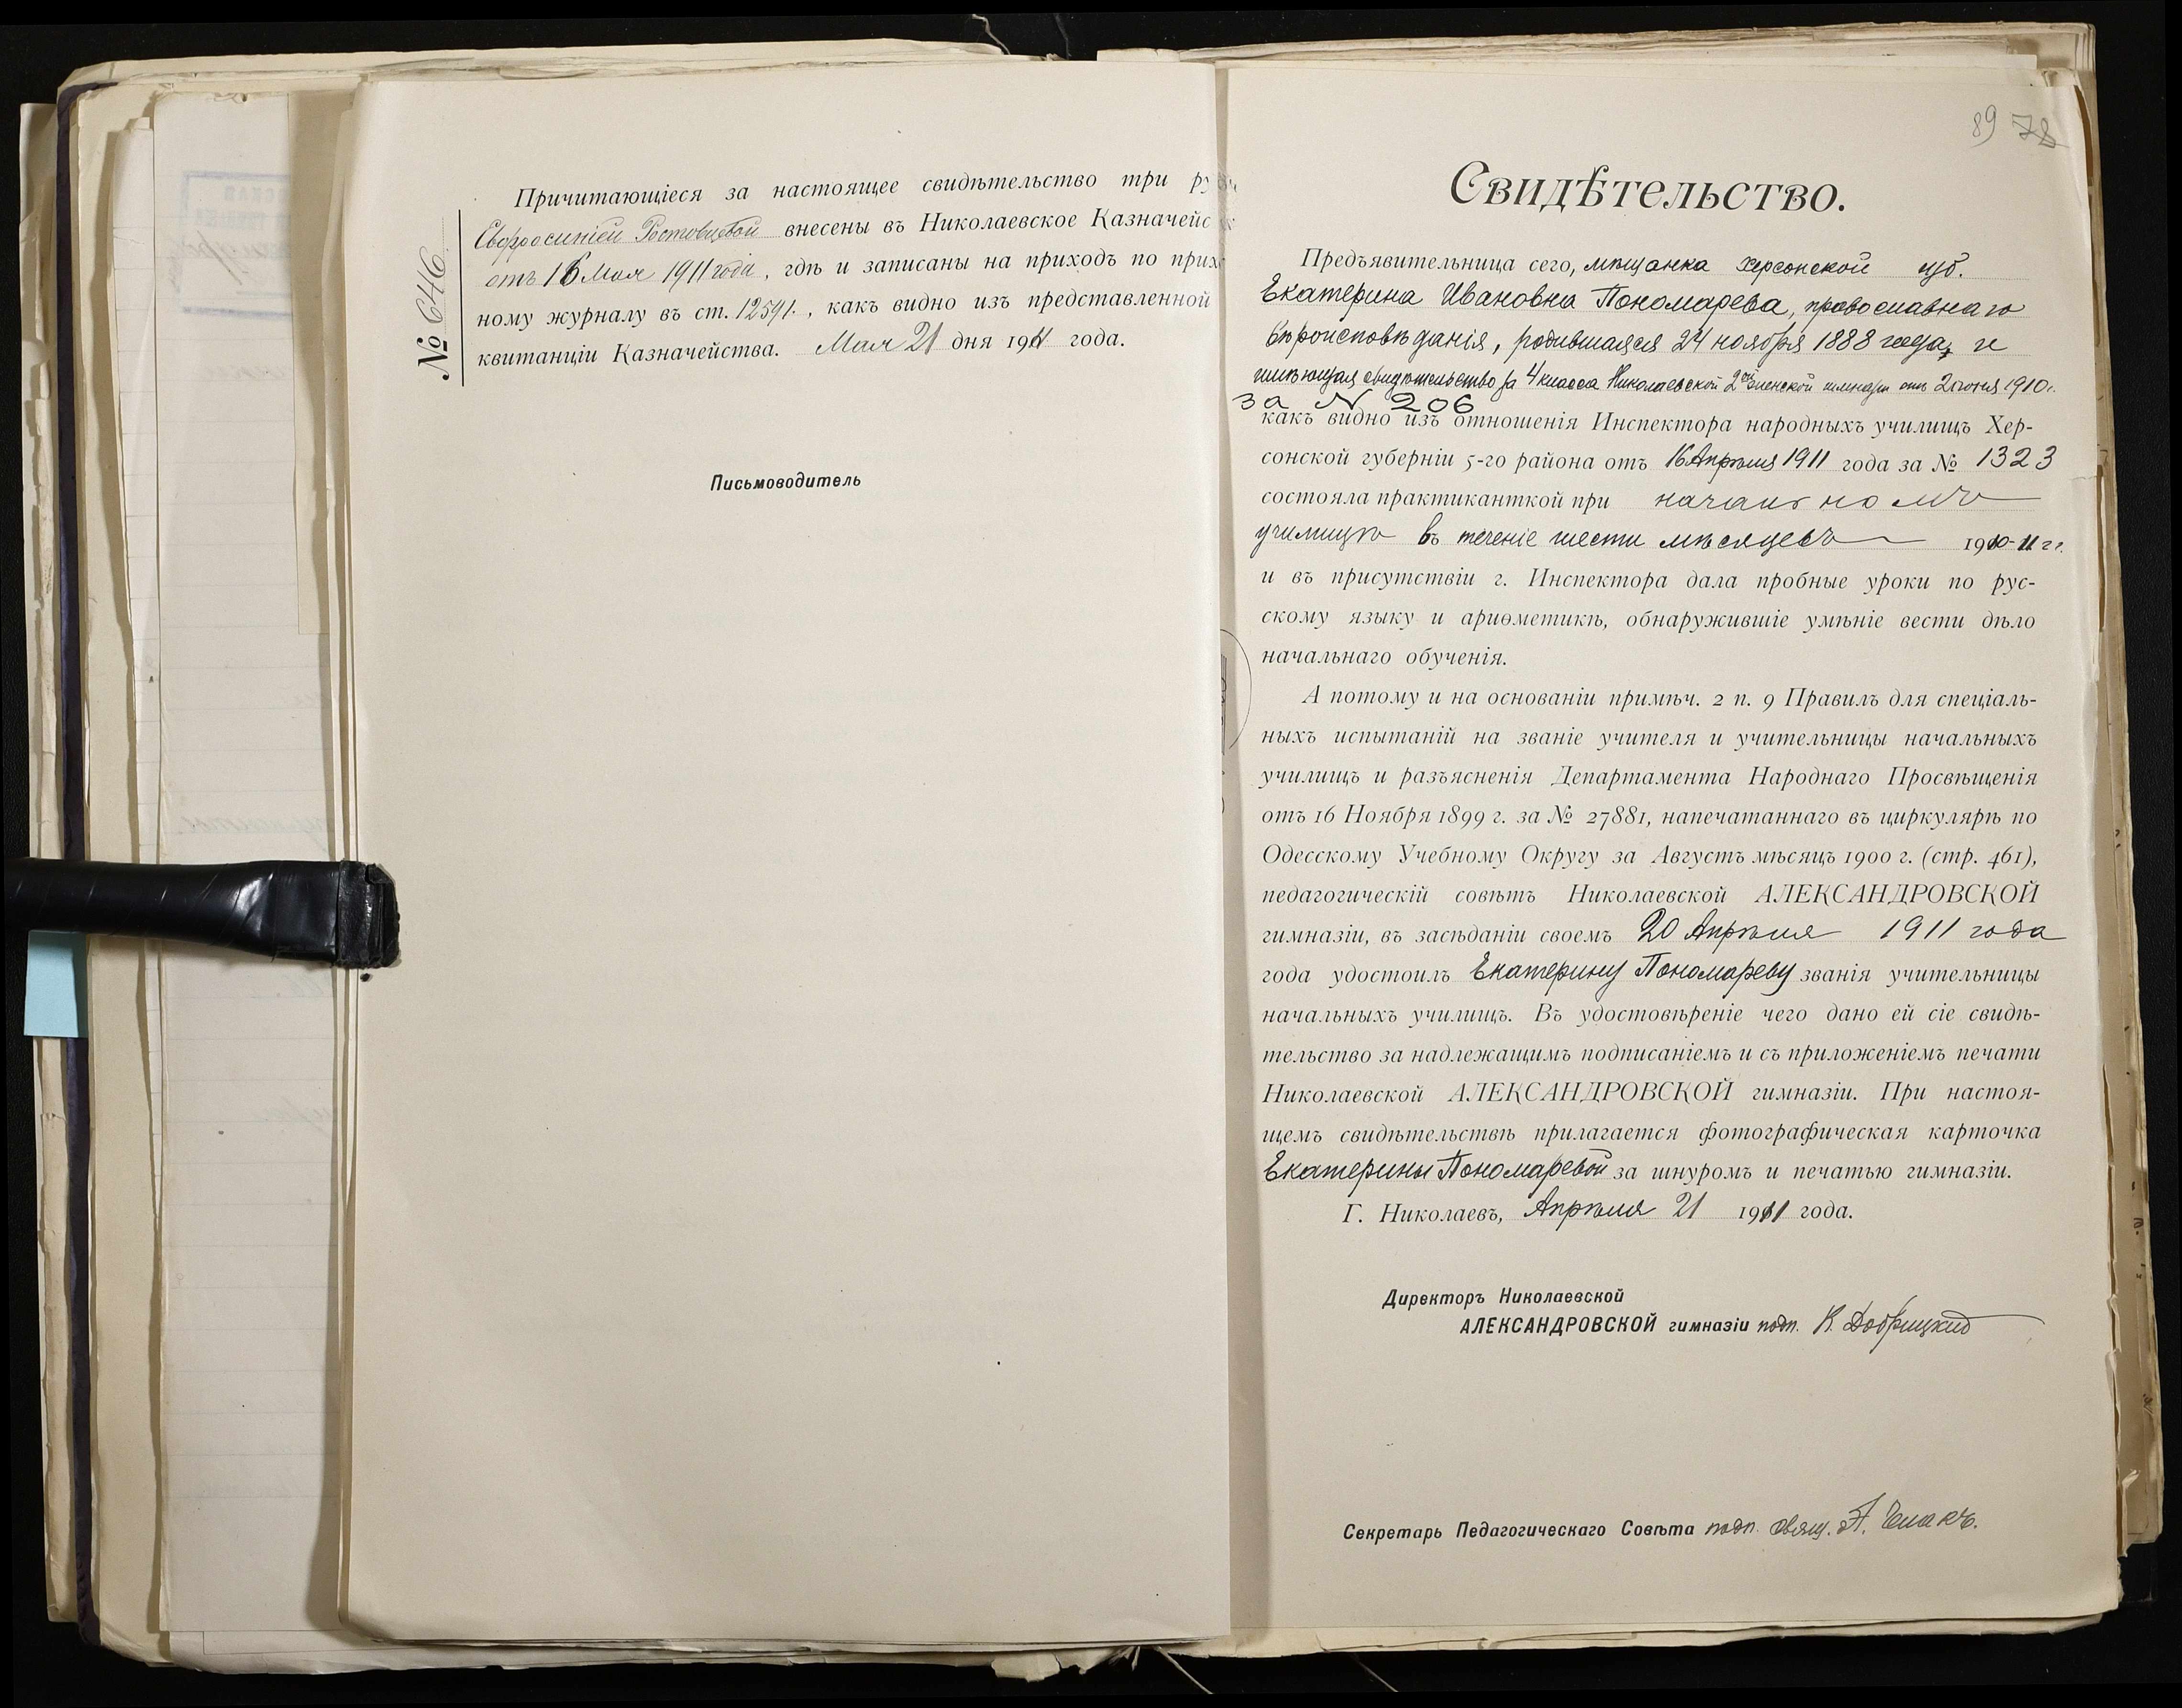 Причитающіеся за настоящее свидѣтельство три
Евфросиніей Ростовцевой внесены въ Николаевское Казначейс
отъ 16 Мая 1911 года, гдѣ и записаны на приходъ по прих
ному журналу въ ст. 12591., какъ видно изъ представленной
квитанціи Казначейства. Мая 21 дня 1911 года.
№ 646.
Письмоводитель
89 78
Свидѣтельство.
Предъявительница сего, мѣщанка херсонской губ.
Екатерина Ивановна Пономарева, православнаго
вѣроисповѣданія, родившаяся 24 ноября 1888 года, и
имѣющая свидѣтельство за 4 класса Николаевской 2ой женской гимназіи отъ 2 іюня 1910 г.
за N 206
какъ видно изъ отношенія Инспектора народныхъ училищъ Хер-
сонской губерніи 5-го района отъ 16 Апрѣля 1911 года за № 1323
состояла практиканткой при начальномъ
училищѣ въ теченіе шести мѣсяцевъ 1910-11 гг.
и въ присутствіи г. Инспектора дала пробные уроки по рус-
скому языку и ариѳметикѣ, обнаружившіе умѣніе вести дѣло
начальнаго обученія.
А потому и на основаніи примѣч. 2 п. 9 Правилъ для спеціаль-
ныхъ испытаній на званіе учителя и учительницы начальныхъ
училищъ и разъясненія Департамента Народнаго Просвѣщенія
отъ 16 Ноября 1899 г. за № 27881, напечатаннаго въ циркулярѣ по
Одесскому Учебному Округу за Августъ мѣсяцъ 1900 г. (стр. 461),
педагогическій совѣтъ Николаевской АЛЕКСАНДРОВСКОЙ
гимназіи, въ засѣданіи своемъ 20 Апрѣля 1911 года
года удостоилъ Екатерину Пономареву званія учительницы
начальныхъ училищъ. Въ удостовѣреніе чего дано ей сіе свидѣ-
тельство за надлежащимъ подписаніемъ и съ приложеніемъ печати
Николаевской АЛЕКСАНДРОВСКОЙ гимназіи. При настоя-
щемъ свидѣтельствѣ прилагается фотографическая карточка
Екатерины Пономаревой за шнуромъ и печатью гимназіи.
Г. Николаевъ, Апрѣля 21 1911 года.
Директоръ Николаевской
АЛЕКСАНДРОВСКОЙ гимназіи подп. К. Добрицкій
Секретарь Педагогическаго Совѣта подп. свящ. А.